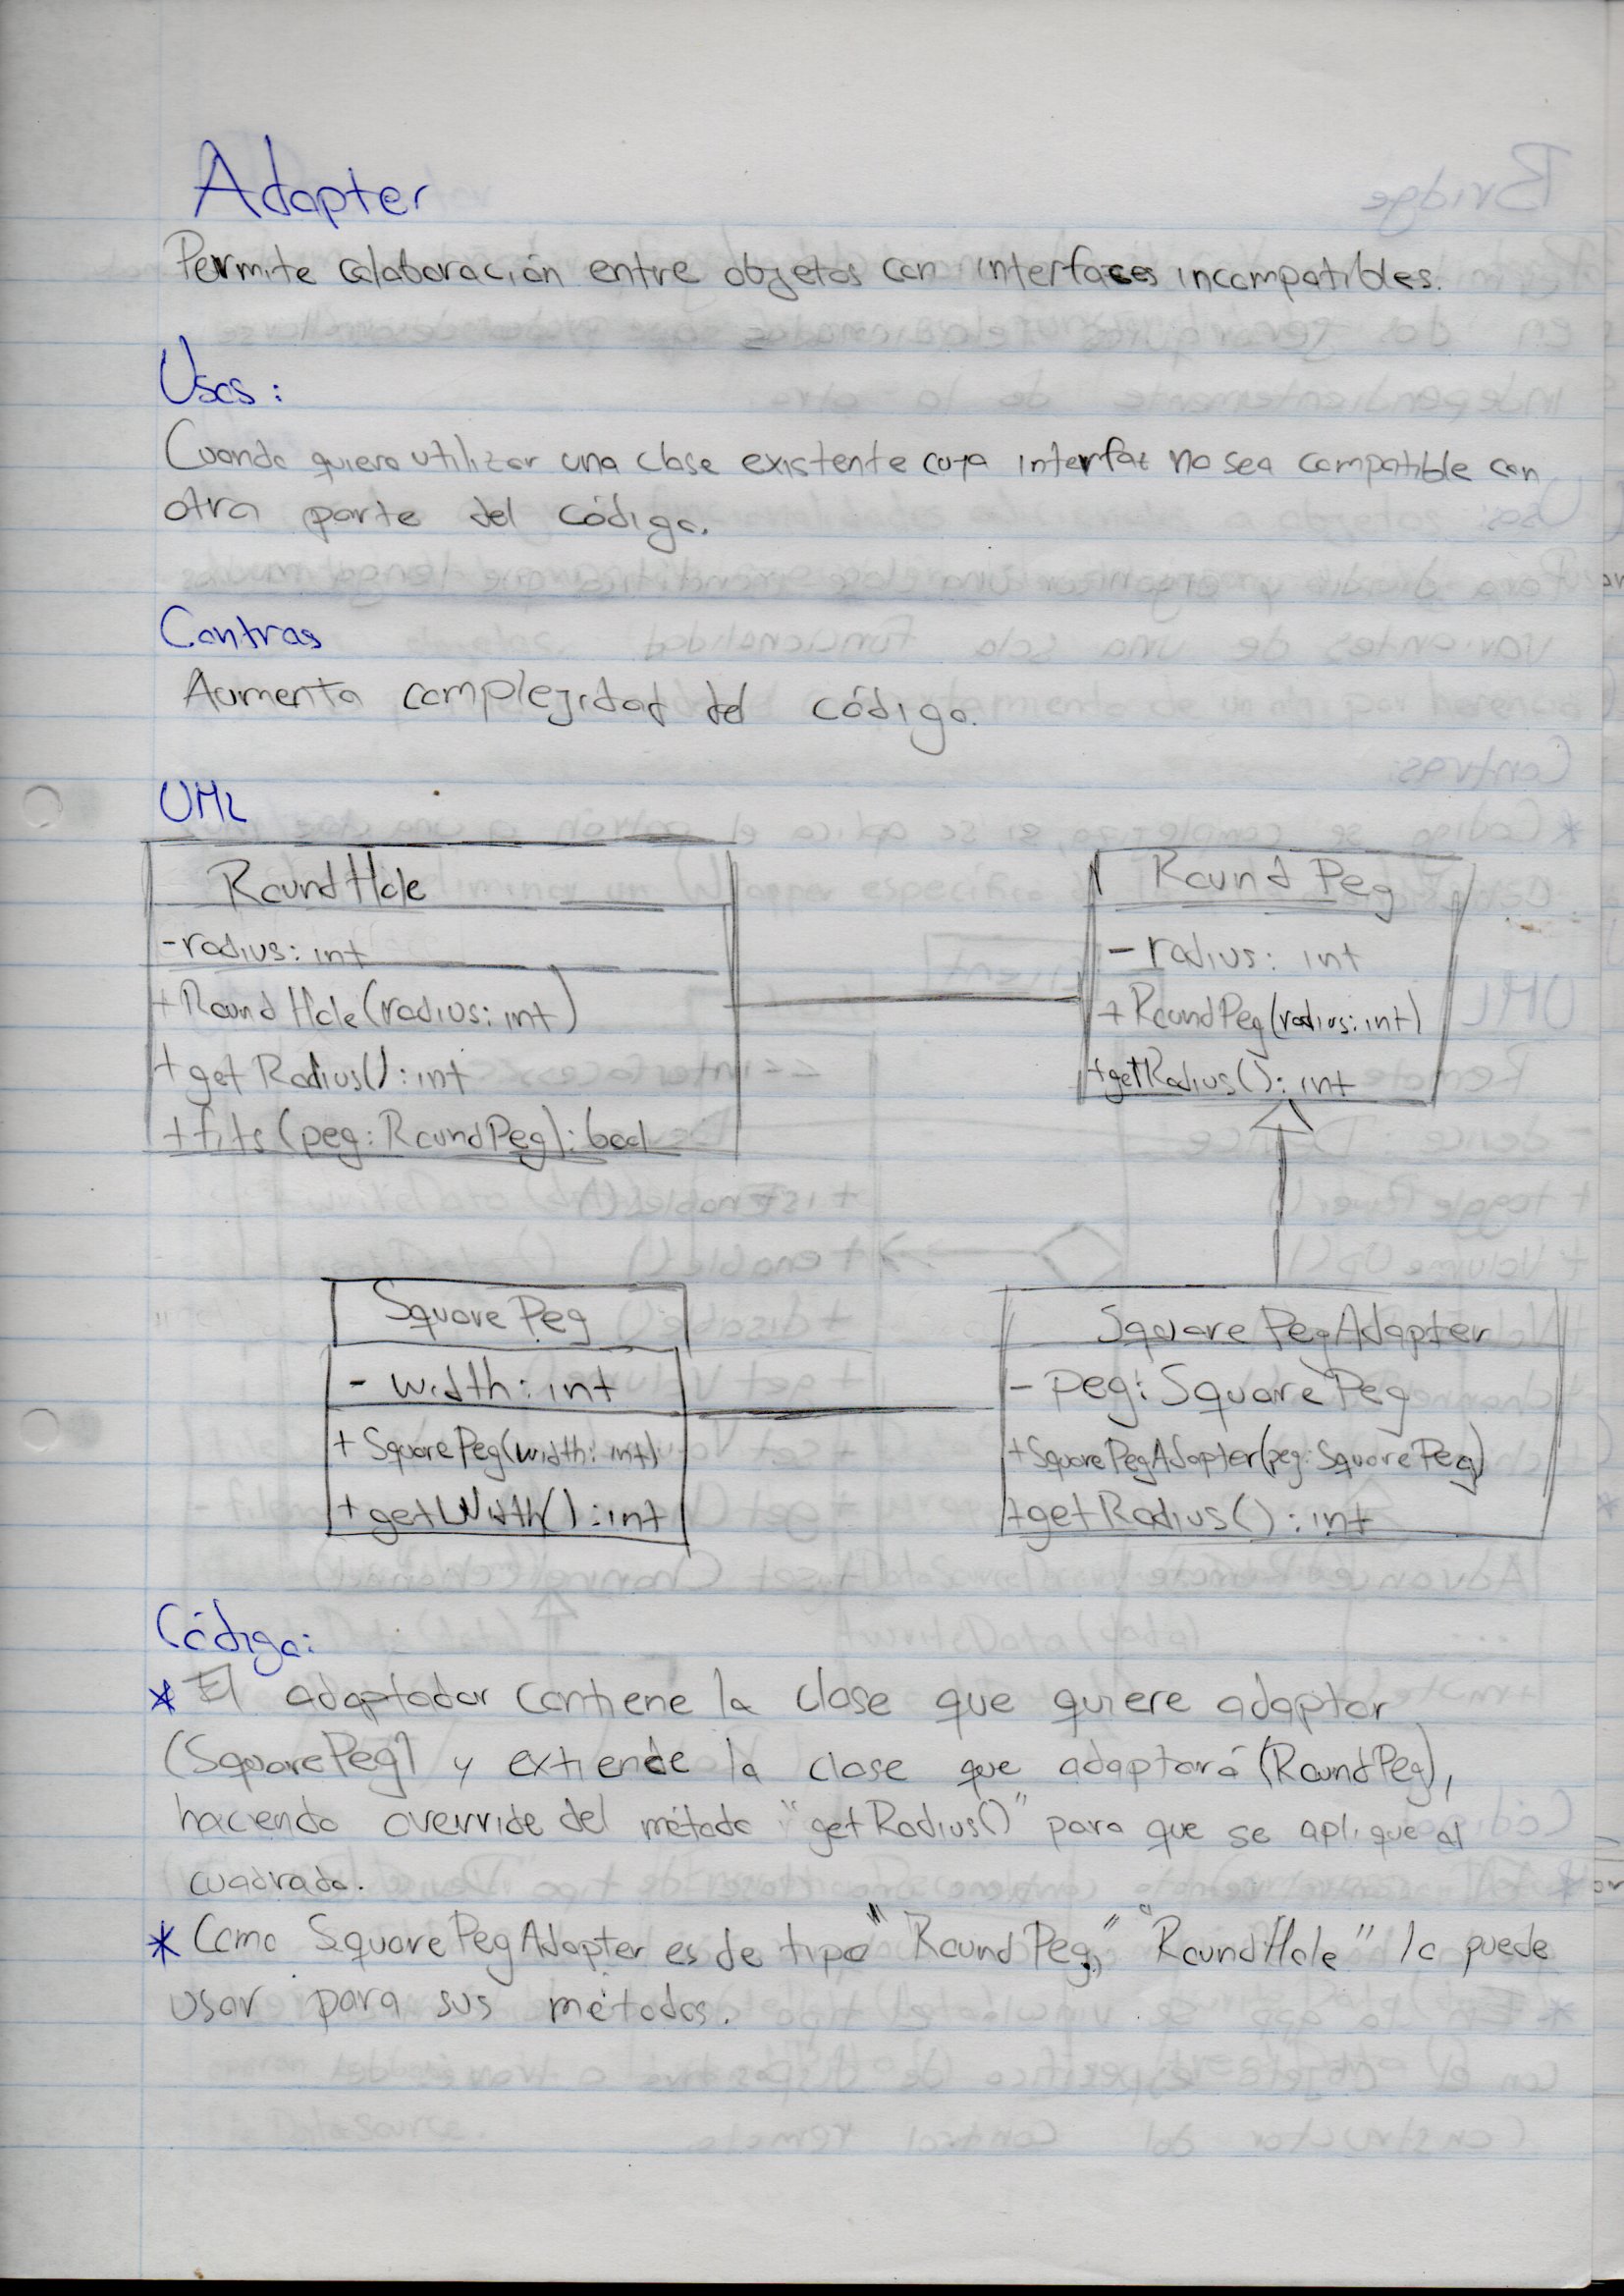 Adapter
Permite colaboración entre objetos con interfaces incompatibles.
Usos:
Cuando quiero utilizar una clase existente cuya interfaz no sea compatible con
otra parte del código.
Contras
Aumenta complejidad del código.
UML
RoundHole
-radius: int
+RoundHole(radius: int)
+getRadius(): int
+fits(peg: RoundPeg): bool
Round Peg
- radius: int
+RoundPeg(radius: int)
+getRadius(): int
Square Peg
- width: int
+ SquarePeg(width: int)
+ getWidth(): int
Square PegAdapter
- peg: Square Peg
+SquarePegAdapter(peg: SquarePeg)
+getRadius(): int
Código:
* El adaptador contiene la clase que quiere adaptar
(SquarePeg) y extiende la clase que adaptará (RoundPeg),
haciendo override del método "getRadius()" para que se aplique al
cuadrado.
* Como SquarePegAdapter es de tipo "RoundPeg," "RoundHole" lo puede
usar para sus métodos.